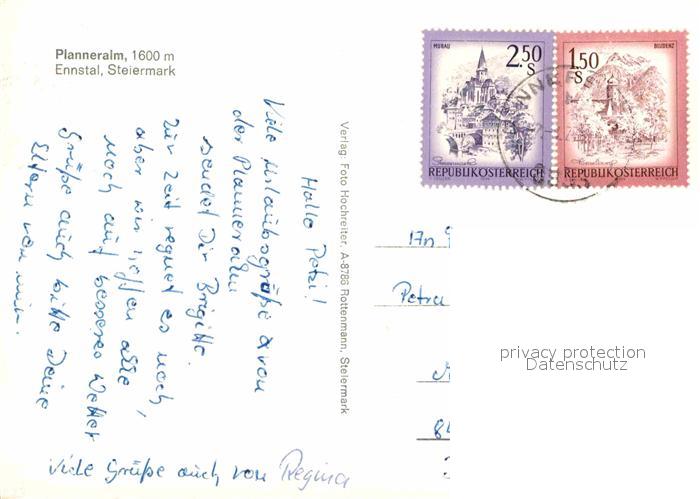 Planneralm, 1600 m
Ennstal, Steiermark
Hallo Petri!
Viele Urlaubsgrüße von
der Planneralm
sendet Dir Brigitte.
Zur Zeit regnet es noch,
aber wir hoffen alle
noch auf besseres Wetter
Grüße auch bitte Deine
Eltern von mir.
Viele Grüße auch von Regina
Verlag: Foto Hochreiter, A-8786 Rottenmann, Steiermark
MURAU
2.50
S
REPUBLIK ÖSTERREICH
BLUDENZ
1.50
S
REPUBLIK ÖSTERREICH
Petra
privacy protection
Datenschutz